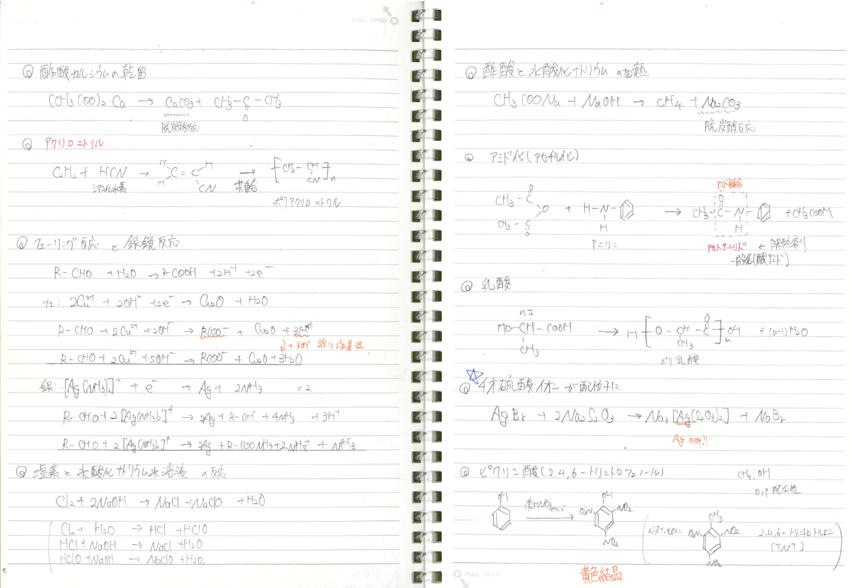 酢酸カルシウムの乾留
(CH3COO)2Ca → CaCO3 + CH3-C-CH3
O
脱炭酸反応
アクリロニトリル
C2H2 + HCN → H C=C H → [CH2-CH]n
シアン化水素 H CN 付加重合 CN
ポリアクリロニトリル
フェーリング反応と銀鏡反応
R-CHO + H2O → R-COOH + 2H+ + 2e-
フェ: 2Cu2+ + 2OH- + 2e- → Cu2O + H2O
R-CHO + 2Cu2+ + 2OH- → RCOO- + Cu2O + 3H+
R-CHO + 2Cu2+ + 5OH- → RCOO- + Cu2O + 3H2O
銀: [Ag(NH3)2]+ + e- → Ag + 2NH3 ×2
R-CHO + 2[Ag(NH3)2]+ → 2Ag + 4NH3 + 3H+
R-CHO + 2[Ag(NH3)2]+ → 2Ag + R-COONH4 + 2NH4+ + NH3
塩素と水酸化ナトリウム水溶液の反応
Cl2 + 2NaOH → NaCl + NaClO + H2O
Cl2 + H2O → HCl + HClO
HCl + NaOH → NaCl + H2O
HClO + NaOH → NaClO + H2O
酢酸と水酸化ナトリウムの加熱
CH3COONa + NaOH → CH4 + Na2CO3
脱炭酸反応
アミド化(アセチル化)
アミド結合
CH3-C O
O + H-N- → CH3-C-N- + CH3COOH
CH3-C O H O H
アニリン アセトアニリド ← 解熱剤
乳酸
HO-CH-COOH → H[O-CH-C]OH + (n-1)H2O
CH3 CH3 O n
ポリ乳酸
チオ硫酸イオンが配位子に
AgBr + 2Na2S2O3 → Na3[Ag(S2O3)2] + NaBr
ピクリン酸(2,4,6-トリニトロフェノール)
CH3, OH
o,p配向性
OH OH
O2N NO2
NO2
CH3
O2N NO2
NO2
2,4,6-トリニトロトルエン
(TNT)
黄色結晶